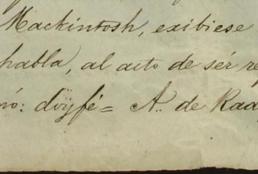 Mackintosh, exibiese
habla, al acto de sér re
nó: doÿfé= A. de Rad